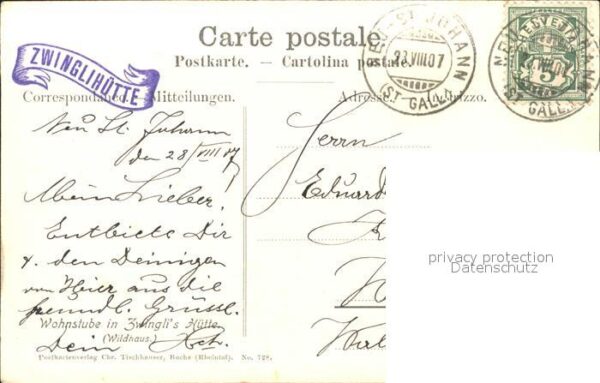 Carte postale
Postkarte. — Cartolina postale.
ZWINGLIHÜTTE
NEU-ST. JOHANN
28.VIII.07
(ST. GALLEN)
HELVETIA
5
NEU-ST. JOHANN
VIII.07
(ST. GALLEN)
Correspondance. Mitteilungen.
Adresse. Indirizzo.
Neu St. Johann
den 28/VIII 07
Mein Lieber,
Entbiete Dir
& den Deinigen
von Hier aus die
freundl. Grüsse.
Dein
Herrn
Eduard
Wohnstube in Zwingli's Hütte.
(Wildhaus.)
Postkartenverlag Chr. Tischhauser, Buchs (Rheintal). No. 728.
privacy protection
Datenschutz